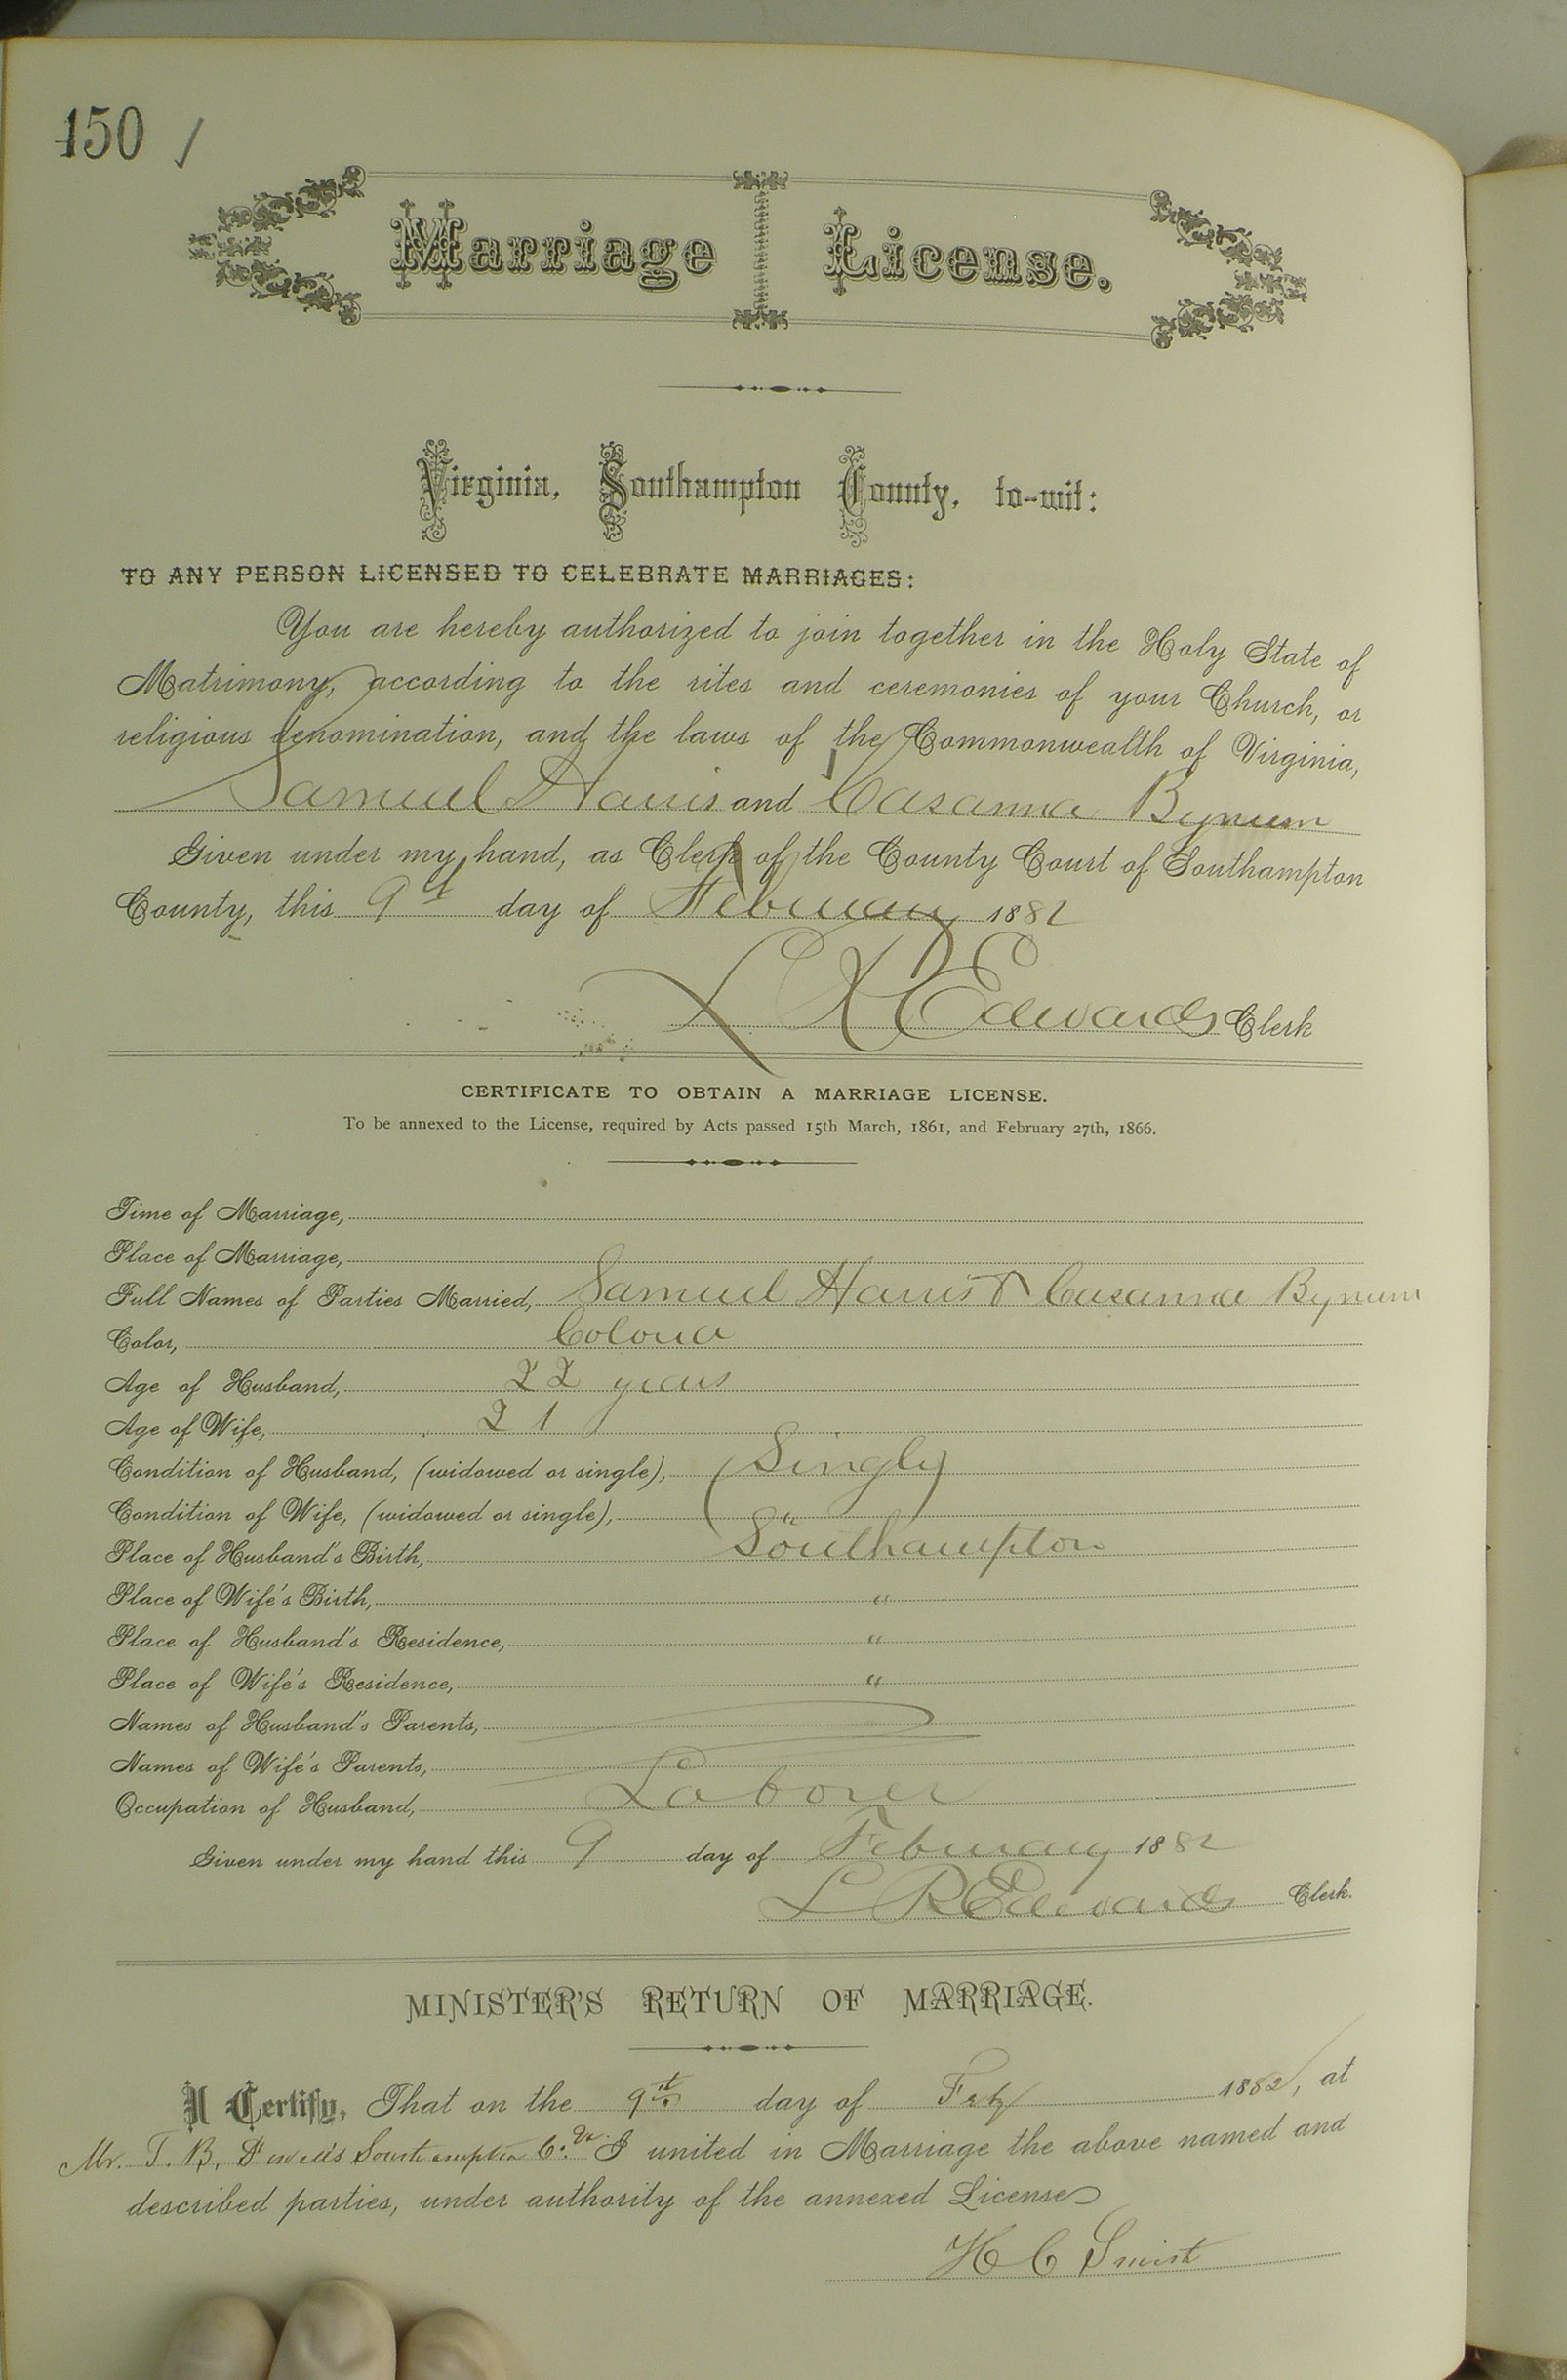 150 /
Marriage License.
Virginia, Southampton County, to-wit:
TO ANY PERSON LICENSED TO CELEBRATE MARRIAGES:
You are hereby authorized to join together in the Holy State of
Matrimony, according to the rites and ceremonies of your Church, or
religious denomination, and the laws of the Commonwealth of Virginia,
Samuel Harris and Casanna Bynum
Given under my hand, as Clerk of the County Court of Southampton
County, this 9th day of February 1882
L R Edwards Clerk
CERTIFICATE TO OBTAIN A MARRIAGE LICENSE.
To be annexed to the License, required by Acts passed 15th March, 1861, and February 27th, 1866.
Time of Marriage,
Place of Marriage,
Full Names of Parties Married, Samuel Harris & Casanna Bynum
Color, Colored
Age of Husband, 22 years
Age of Wife, 21
Condition of Husband, (widowed or single), Single
Condition of Wife, (widowed or single), "
Place of Husband's Birth, Southampton
Place of Wife's Birth, "
Place of Husband's Residence, "
Place of Wife's Residence, "
Names of Husband's Parents,
Names of Wife's Parents,
Occupation of Husband, Laborer
Given under my hand this 9 day of February 1882
L R Edwards Clerk.
MINISTER'S RETURN OF MARRIAGE.
I Certify, That on the 9th day of Feb 1882, at
Mr. T. B. Southampton Co. Va. I united in Marriage the above named and
described parties, under authority of the annexed License
H C